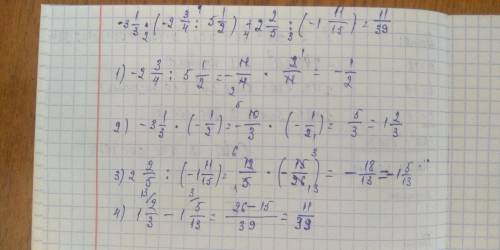 -3 1/3 · (-2 3/4 : 5 1/2) + 2 2/5 : (-1 11/15) = 11/39
1) -2 3/4 : 5 1/2 = -11/4 · 2/11 = -1/2
2) -3 1/3 · (-1/2) = -10/3 · (-1/2) = 5/3 = 1 2/3
3) 2 2/5 : (-1 11/15) = 12/5 · (-15/26) = -18/13 = -1 5/13
4) 1 2/3 - 1 5/13 = 26-15/39 = 11/39